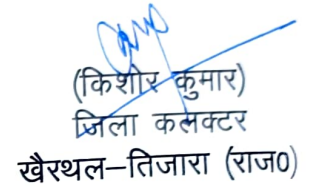 (किशोर कुमार)
जिला कलक्टर
खैरथल–तिजारा (राज0)